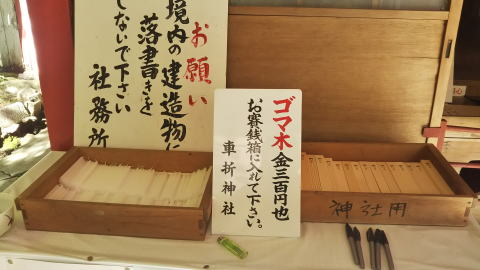 お願い
境内の建造物に
落書きを
しないで下さい
社務所
ゴマ木金三百円也
お賽銭箱に入れて下さい。
車折神社
神社用